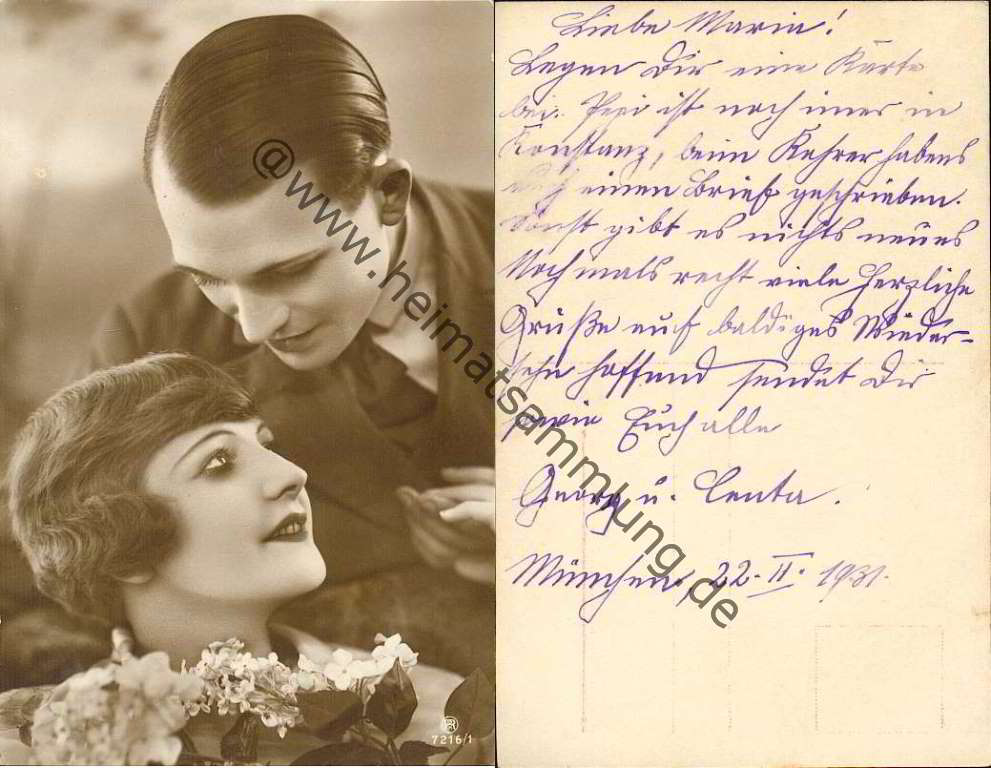 7216/1
@www.heimatsammlung.de
Liebe Marie!
Legen Dir eine Karte
bei. Pepi ist noch imer in
Konstanz, beim Kehrer habens
auch einen Brief geschrieben.
Sonst gibt es nichts neues
Nochmals recht viele herzliche
Grüße auf baldiges Wieder-
sehn hoffend sendet Dir
sowie Euch alle
Georg u. Centa.
München 22. II. 1931.